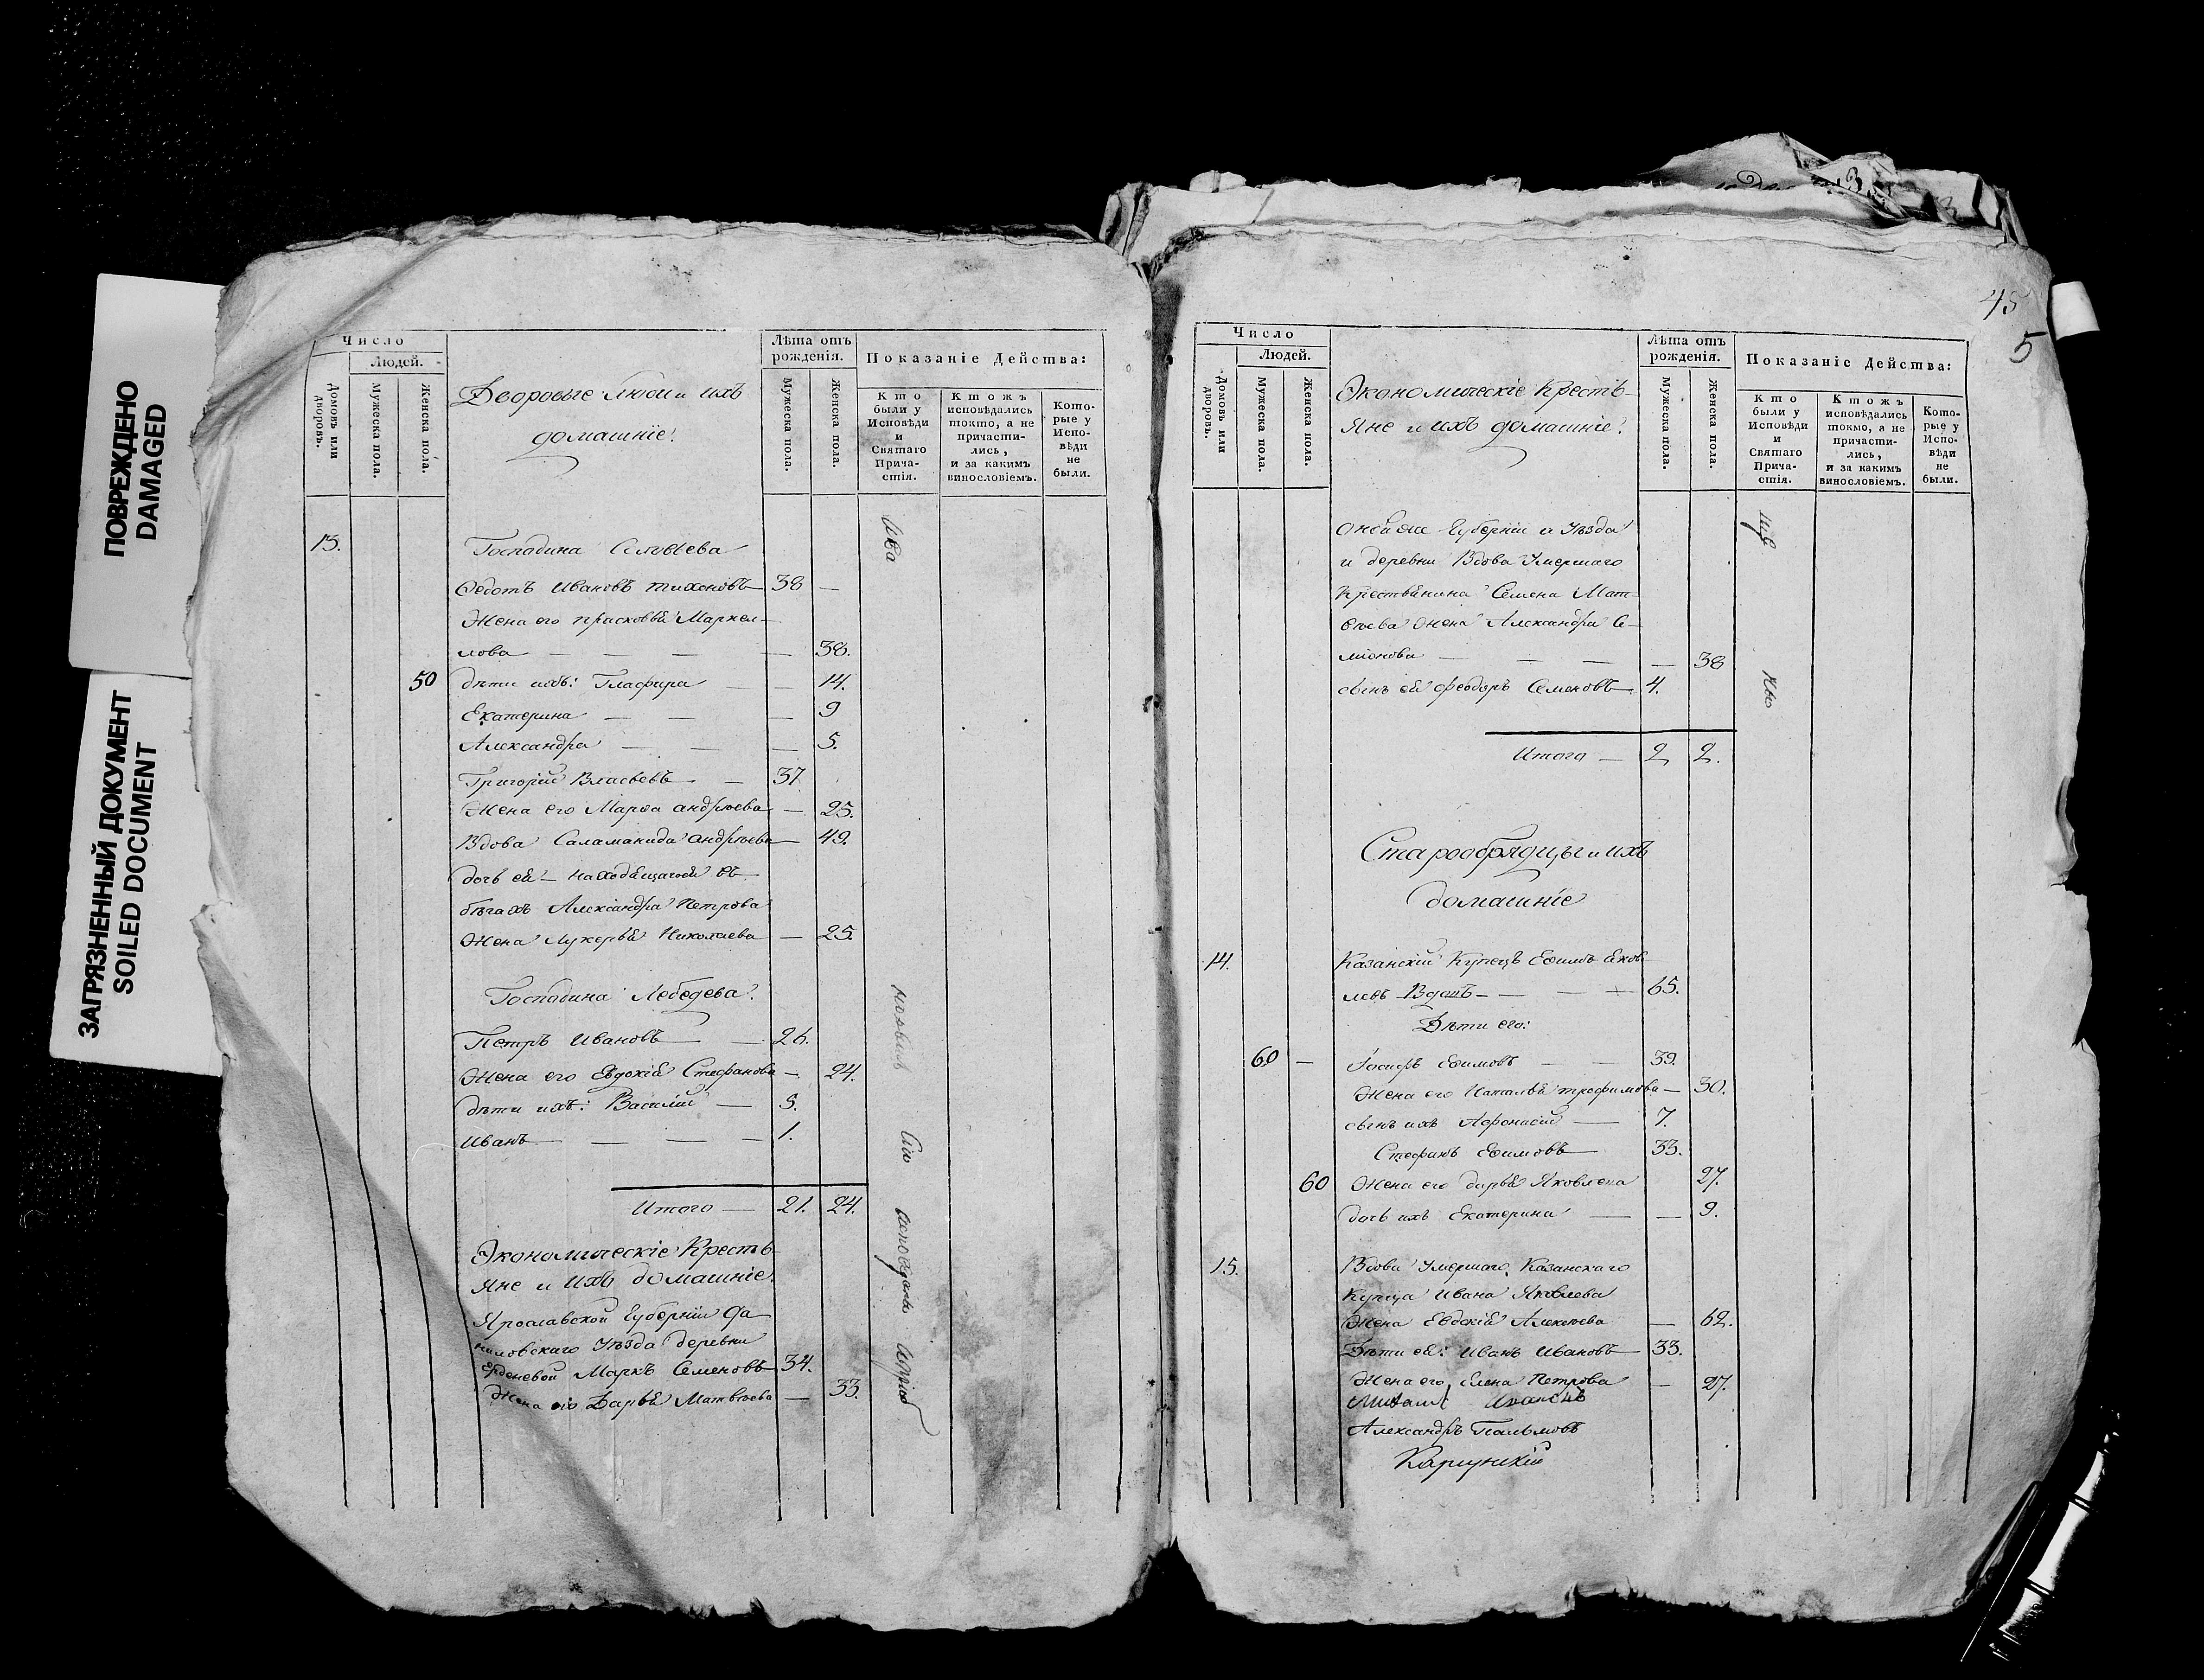 ПОВРЕЖДЕНО
DAMAGED
ЗАГРЯЗНЕННЫЙ ДОКУМЕНТ
SOILED DOCUMENT
Число
Людей.
Домовъ или дворовъ.
Мужеска пола.
Женска пола.
Дворовые люди и ихъ
домашніе.
Лѣта отъ рожденія.
Мужеска пола.
Женска пола.
Показаніе Дѣйства:
Кто были у Исповѣди и Святаго Причастія.
Ктожъ исповѣдались токмо, а не причастились, и за какимъ винословіемъ.
Которые у Исповѣди не были.
13.
Господина Соловьева
Федотъ Ивановъ Тихоновъ — 38 —
Жена его Прасковья Маркел-
лова — — — — 38.
50 дѣти ихъ: Глафира — — 14.
Екатерина — — — 9
Александра — — — 5.
Григорій Власьевъ — — 37.
Жена его Марѳа Андрѣева — 25.
Вдова Саламанида Андрѣева — 49.
дочь ея — находящагося въ
бѣгахъ Александра Петрова
Жена Лукерья Николаева — 25.
Господина Лебедева.
Петръ Ивановъ — — 26.
Жена его Евдокія Стефанова — 24.
дѣти ихъ: Василій — 5.
Иванъ — — — — 1.
Итого — 21. 24.
Экономическіе Кресть-
яне и ихъ домашніе.
Ярославской Губерніи Да-
ниловскаго Уѣзда деревни
Маркъ Семеновъ — 34.
Жена его Дарья Матвѣева — 33.
45
5
Число
Людей.
Домовъ или дворовъ.
Мужеска пола.
Женска пола.
Экономическіе Кресть-
яне и ихъ домашніе.
Лѣта отъ рожденія.
Мужеска пола.
Женска пола.
Показаніе Дѣйства:
Кто были у Исповѣди и Святаго Причастія.
Ктожъ исповѣдались токмо, а не причастились, и за какимъ винословіемъ.
Которые у Исповѣди не были.
Оной же Губерніи и Уѣзда
и деревни Вдова Умершаго
Крестьянина Семена Мат-
ѳѣева Жена Александра Се-
міонова — — — — 38
сынъ ея Феодоръ Семеновъ — 4.
Итого — 2 2.
Старообрядцы и ихъ
домашніе
14. Казанскій Купецъ Ефимъ Яков-
левъ Вдовъ — — — 65.
Дѣти его:
60 — Іосифъ Ефимовъ — — 39.
Жена его Наталья Трофимова — 30.
сынъ ихъ Афонасій — 7.
Стефанъ Ефимовъ — 33.
60 Жена его Дарья Яковлева 27.
дочь ихъ Екатерина — — 9.
15. Вдова Умершаго Казанскаго
Купца Ивана Яковлева
Жена Евдокія Алексѣева — 62.
Дѣти ея: Иванъ Ивановъ — 33.
Жена его Елена Петрова — 27.
Александръ Пальмовъ